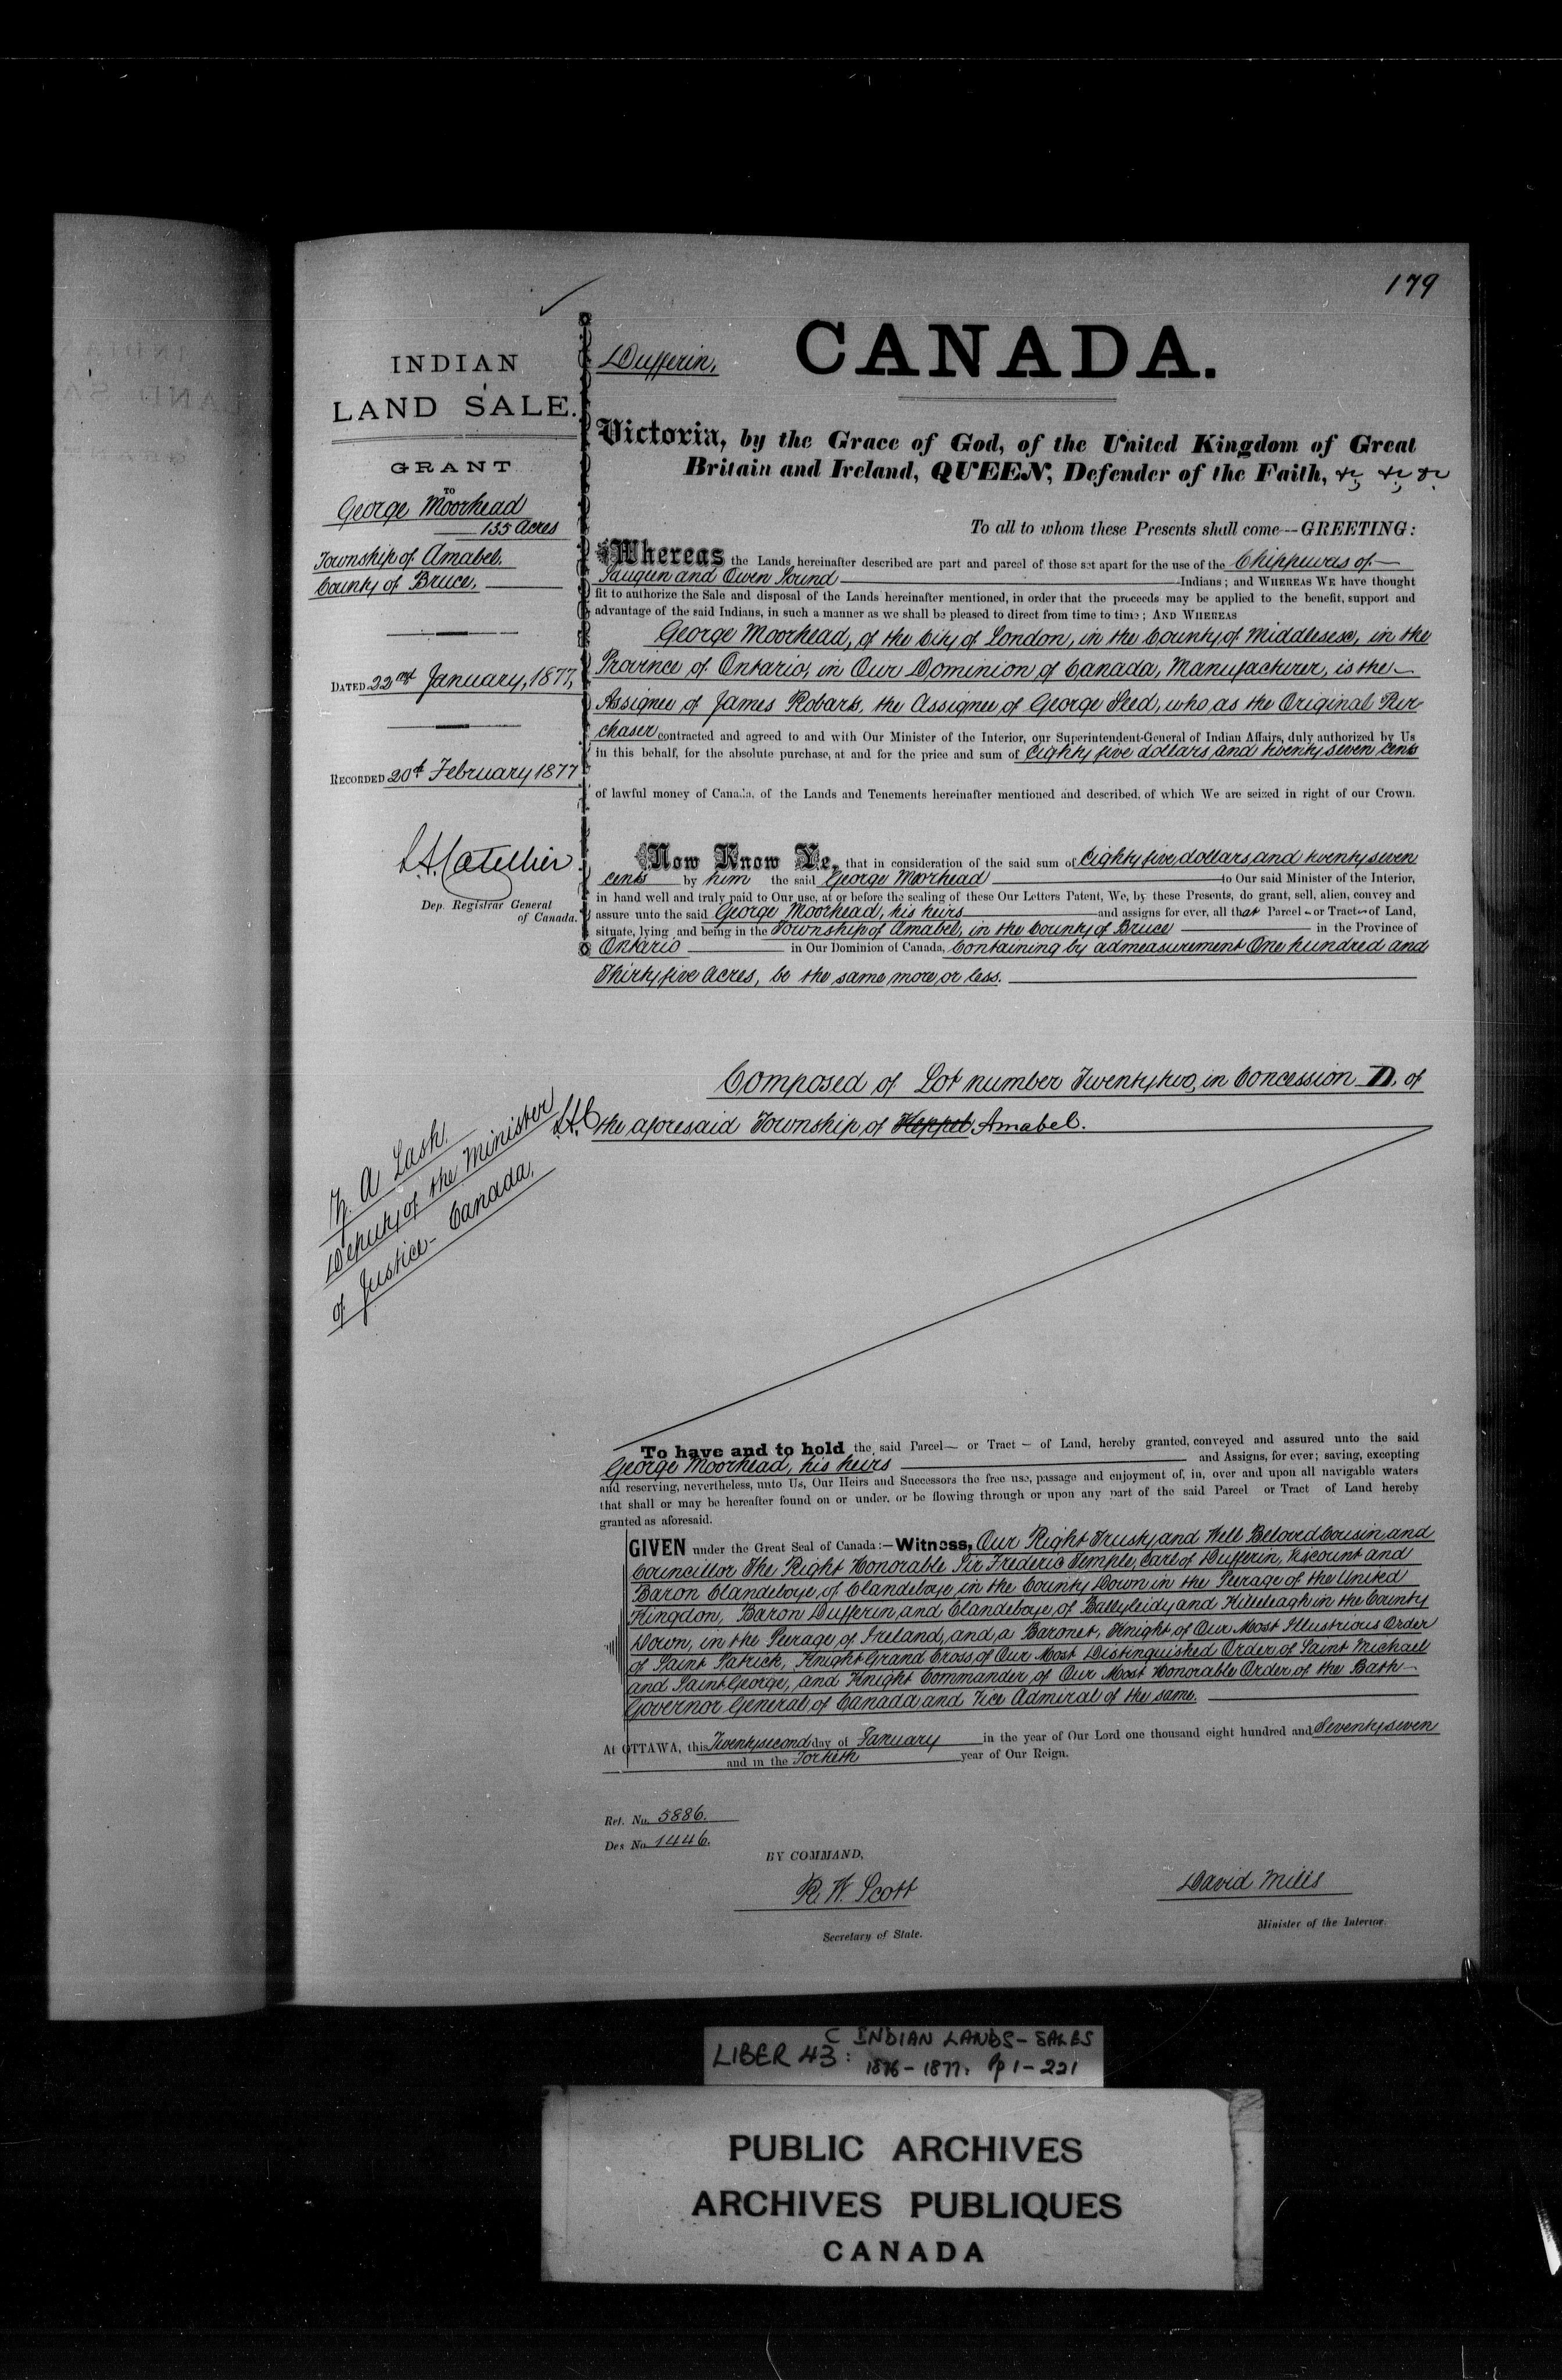 179
INDIAN
LAND SALE.
GRANT
TO
George Moorhead
135 Acres
Township of Amabel.
County of Bruce.
DATED 22nd January, 1877,
RECORDED 20th February 1877
L.A. Catellier
Dep. Registrar General
of Canada.
Z. A Lash.
Deputy of the Minister
of Justice - Canada.
Dufferin.
CANADA.
Victoria, by the Grace of God, of the United Kingdom of Great
Britain and Ireland, QUEEN, Defender of the Faith, &c, &c, &c.
To all to whom these Presents shall come---GREETING:
Whereas the Lands hereinafter described are part and parcel of those set apart for the use of the Chippewas of
Saugeen and Owen Sound Indians; and WHEREAS WE have thought
fit to authorize the Sale and disposal of the Lands hereinafter mentioned, in order that the proceeds may be applied to the benefit, support and
advantage of the said Indians, in such a manner as we shall be pleased to direct from time to time; AND WHEREAS
George Moorhead, of the City of London, in the County of Middlesex, in the
Province of Ontario, in Our Dominion of Canada, Manufacturer, is the
Assignee of James Robarts, the Assignee of George Seed, who as the Original Pur-
chaser contracted and agreed to and with Our Minister of the Interior, our Superintendent-General of Indian Affairs, duly authorized by Us
in this behalf, for the absolute purchase, at and for the price and sum of Eighty five dollars and twenty seven cents
of lawful money of Canada, of the Lands and Tenements hereinafter mentioned and described, of which We are seized in right of our Crown.
Now Know Ye, that in consideration of the said sum of Eighty five dollars and twenty seven
cents by him the said George Moorhead to Our said Minister of the Interior,
in hand well and truly paid to Our use, at or before the sealing of these Our Letters Patent, We, by these Presents, do grant, sell, alien, convey and
assure unto the said George Moorhead, his heirs and assigns for ever, all that Parcel - or Tract - of Land,
situate, lying and being in the Township of Amabel, in the County of Bruce in the Province of
Ontario in Our Dominion of Canada, Containing by admeasurement One hundred and
Thirty five Acres, be the same more or less.
Composed of Lot number Twenty two, in Concession D. of
L.A.C the aforesaid Township of Keppel Amabel.
To have and to hold the said Parcel - or Tract - of Land, hereby granted, conveyed and assured unto the said
George Moorhead, his heirs and Assigns, for ever; saving, excepting
and reserving, nevertheless, unto Us, Our Heirs and Successors the free use, passage and enjoyment of, in, over and upon all navigable waters
that shall or may be hereafter found on or under, or be flowing through or upon any part of the said Parcel or Tract of Land hereby
granted as aforesaid.
GIVEN under the Great Seal of Canada:-Witness, Our Right Trusty and Well Beloved Cousin and
Councillor The Right Honorable Sir Frederic Temple, Earl of Dufferin, Viscount and
Baron Clandeboye, of Clandeboye in the County Down in the Peerage of the United
Kingdon, Baron Dufferin and Clandeboye, of Ballyleidy and Killeleagh in the County
Down, in the Peerage of Ireland, and a Baronet, Knight of Our Most Illustrious Order
of Saint Patrick, Knight Grand Cross of Our Most Distinguished Order of Saint Michael
and Saint George, and Knight Commander of Our Most Honorable Order of the Bath
Governor General of Canada and Vice Admiral of the same.
At OTTAWA, this Twenty second day of January in the year of Our Lord one thousand eight hundred and Seventy seven
and in the Fortieth year of Our Reign.
Ref. No. 5886.
Des No. 1446.
BY COMMAND,
R. W. Scott
Secretary of State.
David Mills
Minister of the Interior.
LIBER 43: C INDIAN LANDS - SALES
1876 - 1877. Pp 1 - 221
PUBLIC ARCHIVES
ARCHIVES PUBLIQUES
CANADA